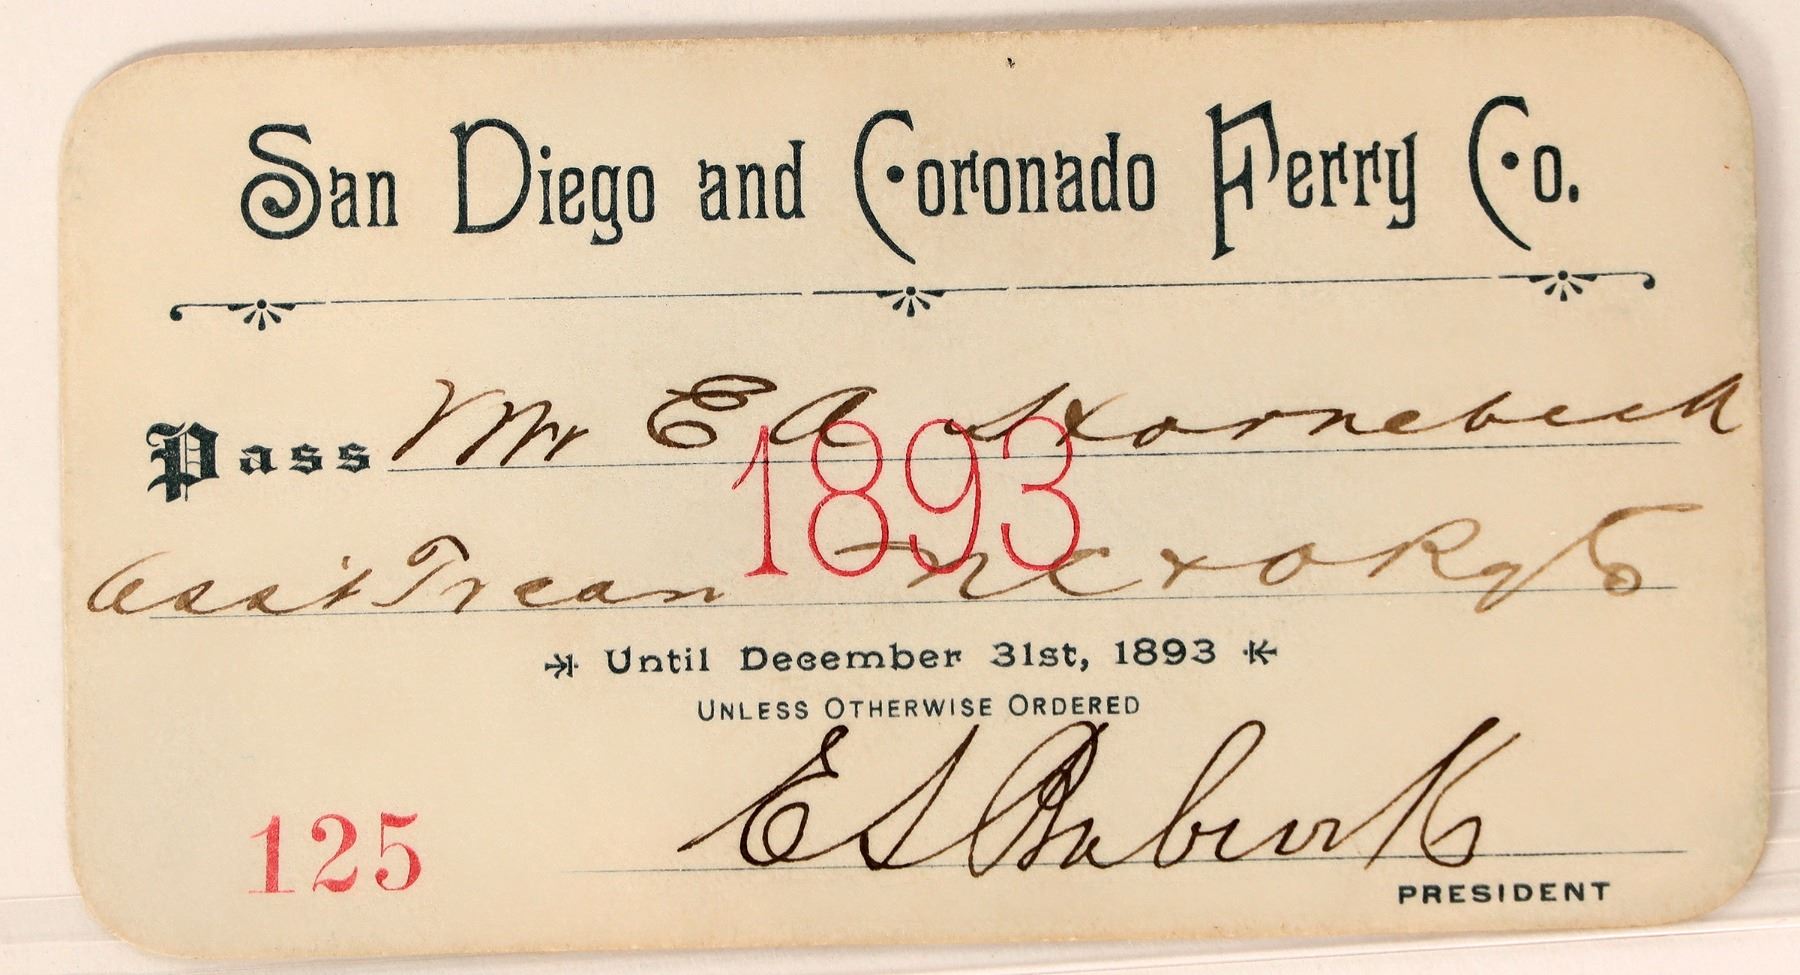 San Diego and Coronado Ferry Co.
Pass Mr E A Hornebeck
1893
Ass't Treas N C & O Ry Co
Until December 31st, 1893
UNLESS OTHERWISE ORDERED
E S Babcock
125
PRESIDENT